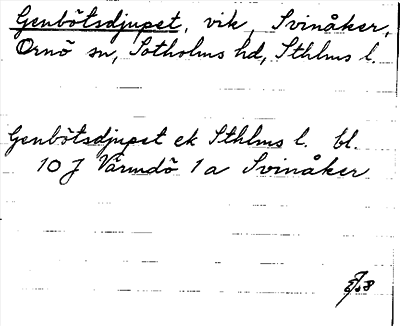 Genbötsdjupet, vik, Svinåker,
Ornö sn, Sotholms hd, Sthlms l.
Genbötsdjupet ek Sthlms l. bl.
10 J Värmdö 1 a Svinåker